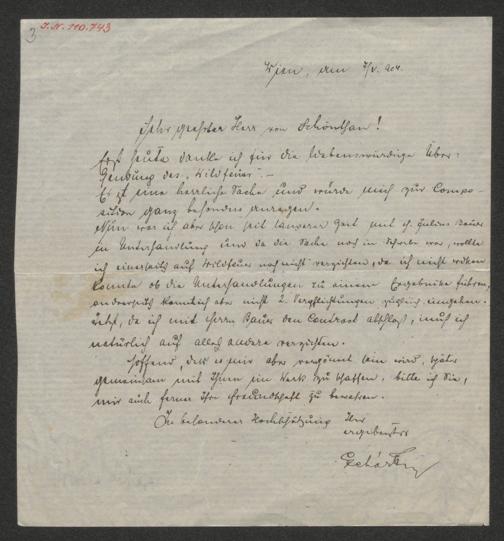 3
I.N. 110.743
Wien, am 7/V. 904.
Sehr geehrter Herr von Schönthan!
Erst heute danke ich für die liebenswürdige Über-
sendung des "Wildfeuer". –
Es ist eine herrliche Sache und würde mich zur Compo-
sition ganz besonders anregen.
Nun war ich aber schon seit längerer Zeit mit H. Julius Bauer
in Unterhandlung und da die Sache noch in Schwebe war, wollte
ich einerseits auf Wildfeuer noch nicht verzichten, da ich nicht wissen
konnte ob die Unterhandlungen zu einem Ergebnisse führen,
anderseits konnte ich aber nicht 2 Verpflichtungen zugleich eingehen.
Jetzt, da ich mit Herrn Bauer den Contract abschloß, muß ich
natürlich auf alles andere verzichten.
Hoffend, daß es mir aber vergönnt sein wird, später
gemeinsam mit Ihnen ein Werk zu schaffen, bitte ich Sie,
mir auch ferner Ihre Freundschaft zu bewahren.
In besonderer Hochschätzung Ihr
ergebenster
FLehár